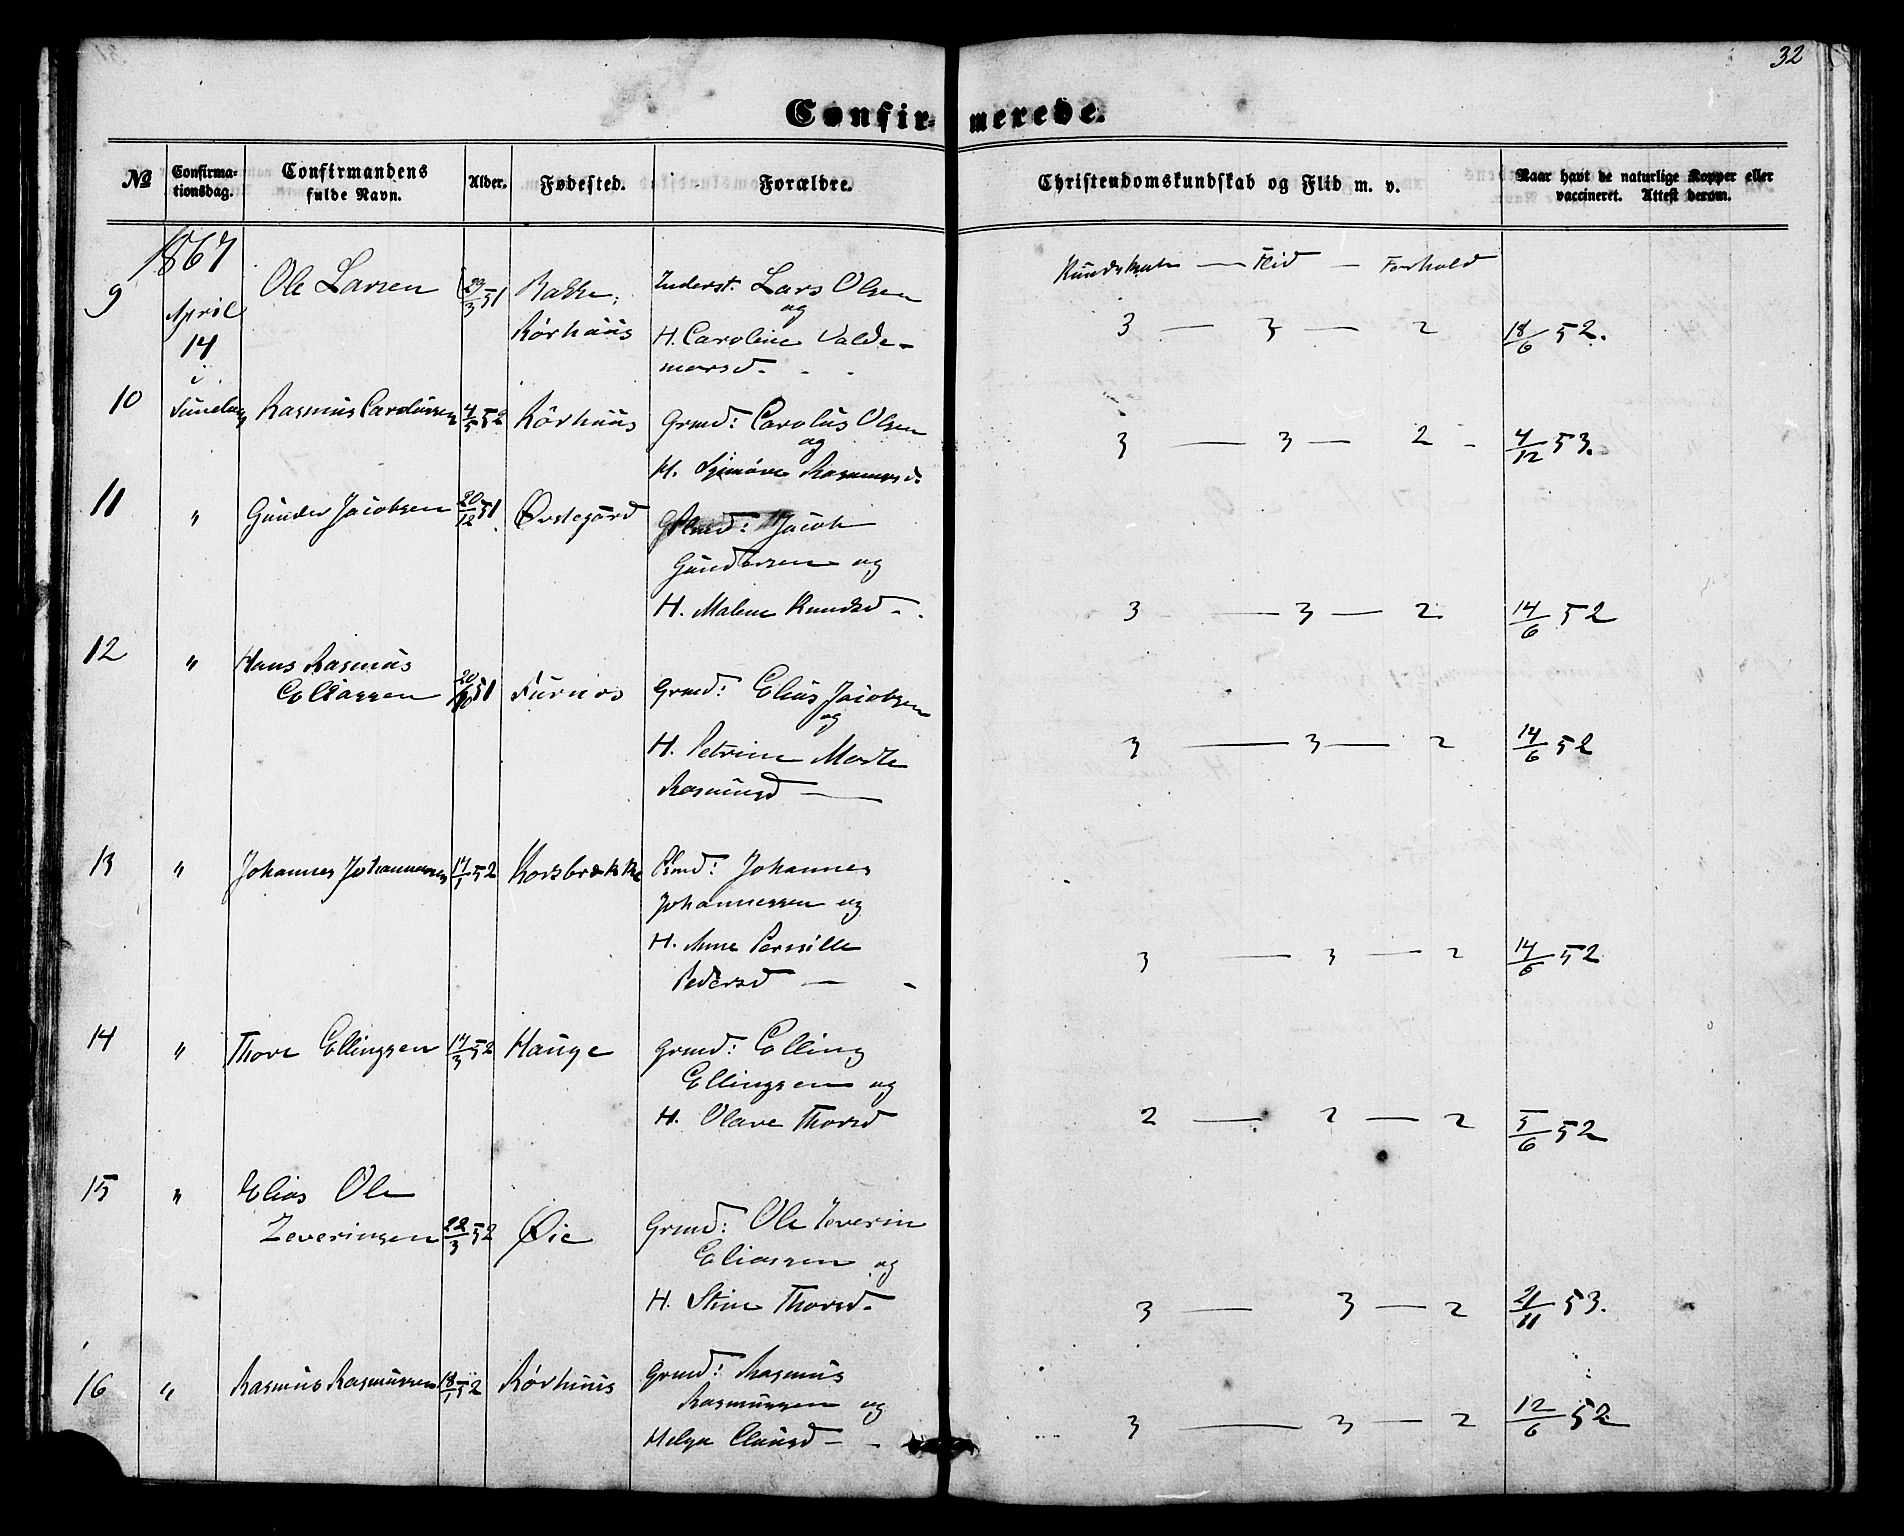 32
Confirmerede.
No Confirmationsdag. Confirmandens fulde Navn. Alder. Fødested. Forældre. Christendomskundskab og Flid m. v. Naar havt de naturlige Kopper eller vaccineret. Attest derom.
1867
Kundskab — Flid — Forhold
9 April 14 i Ole Larsen 29/3 51 Bakke, Rørhuus
Inderst. Lars Olsen
og
H. Caroline Valde-
marsd. 3 — 3 — 2 18/6 52.
10 Sunelven Rasmus Carolussen 4/5 52 Rörhuus Grmd: Carolus Olsen
og
H. Rasmusd. 3 — 3 — 2 - 4/12 53.
11 " Gunder Jacobsen 20/12 51 Ørstegård : Jacob
Gundersen og
H. Malene Knudsd. 3 — 3 — 2 14/6 52
12 " Hans Rasmus
Eliassen 51 Furnes Grmd: Elias Jacobsen
og
H. Petrine Marte
Rasmusd — 3 — 3 — 2 14/6 52
13 " Johannes Johannessen 17/1 52 Korsbrække Pmd: Johannes
Johannessen og
H. Anne Pernille
Pedersd — 3 — 3 — 2 14/6 52
14 " Thore Ellingsen 17/3 52 Hauge Grmd: Elling
Ellingsen og
H. Olave Thorsd 2 — 2 — 2 5/6 52
15 " Elias Ole
Zeverinsen 22/3 52 Øie Grmd: Ole Zeverin
Eliassen og
H. Stine Thorsd. 3 — 3 — 2 21/11 53.
16 " Rasmus Rasmussen 18/1 52 Rørhuus Grmd: Rasmus
Rasmussen og
Helga Clausd — 3 — 3 — 2 12/6 52